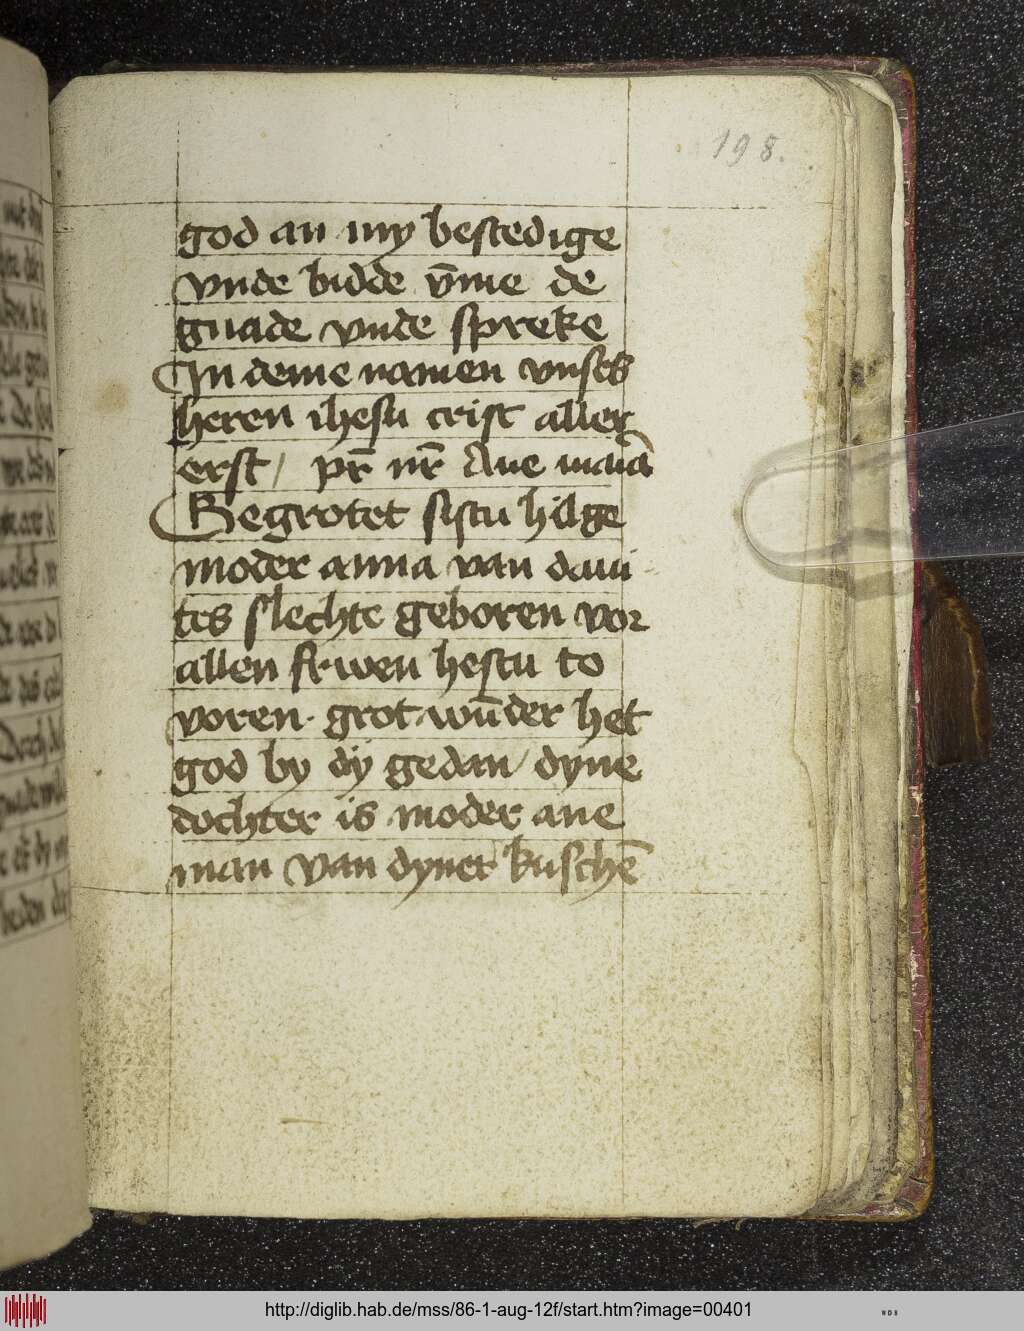 198.
god an my bestedige
vnde bidde v̄me de
gnade vnde spreke
In deme namen vnses
heren ihesu crist aller
erst / pr̄ nr̄ Aue maria
Begrotet sistu hilge
moder anna van daui
tes slechte geboren vor
allen frwen hestu to
voren · grot wūder het
god by dy gedan / dyne
dochter is moder ane
man van dyner kuschē
http://diglib.hab.de/mss/86-1-aug-12f/start.htm?image=00401